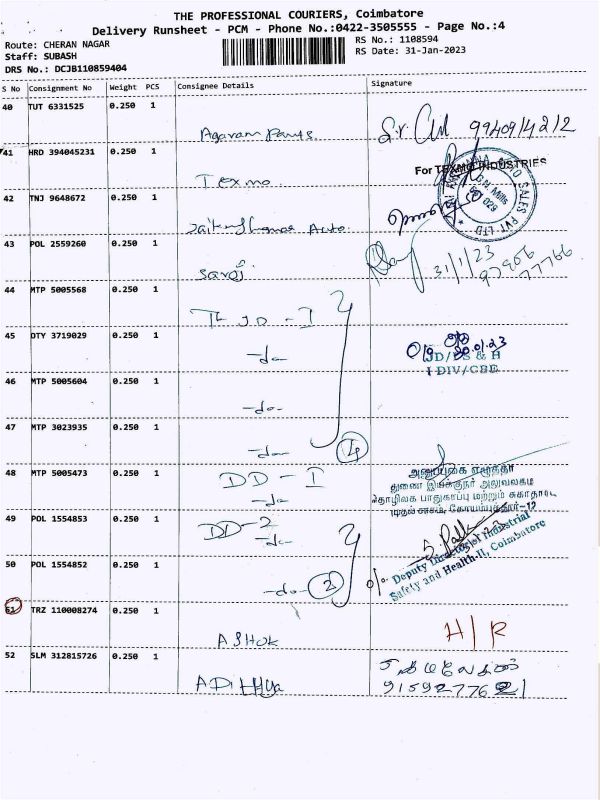 THE PROFESSIONAL COURIERS, Coimbatore
Delivery Runsheet - PCM - Phone No.:0422-3505555 - Page No.:4
Route: CHERAN NAGAR
Staff: SUBASH
DRS No.: DCJB110859404
RS No.: 1108594
RS Date: 31-Jan-2023
S No Consignment No Weight PCS Consignee Details Signature
40 TUT 6331525 0.250 1
Agaram Parts
9940914212
41 HRD 394045231 0.250 1
Texmo
For TEXMO INDUSTRIES
42 TNJ 9648672 0.250 1
Auto
SALES PVT LTD
G.N. Mills
43 POL 2559260 0.250 1
Saroj
31/1/23
77766
44 MTP 5005568 0.250 1
45 DTY 3719029 0.250 1
-do-
JD/IS & H
I DIV/CBE
46 MTP 5005604 0.250 1
-do-
47 MTP 3023935 0.250 1
-do- 4
48 MTP 5005473 0.250 1
DD-I
-do-
துணை இயக்குநர் அலுவலகம்
49 POL 1554853 0.250 1
DD-2
-do-
50 POL 1554852 0.250 1
-do- 2
Deputy Director of Industrial
Safety and Health-II, Coimbatore
51 TRZ 110008274 0.250 1
ASHOK
H/R
52 SLM 312815726 0.250 1
ADITHYA